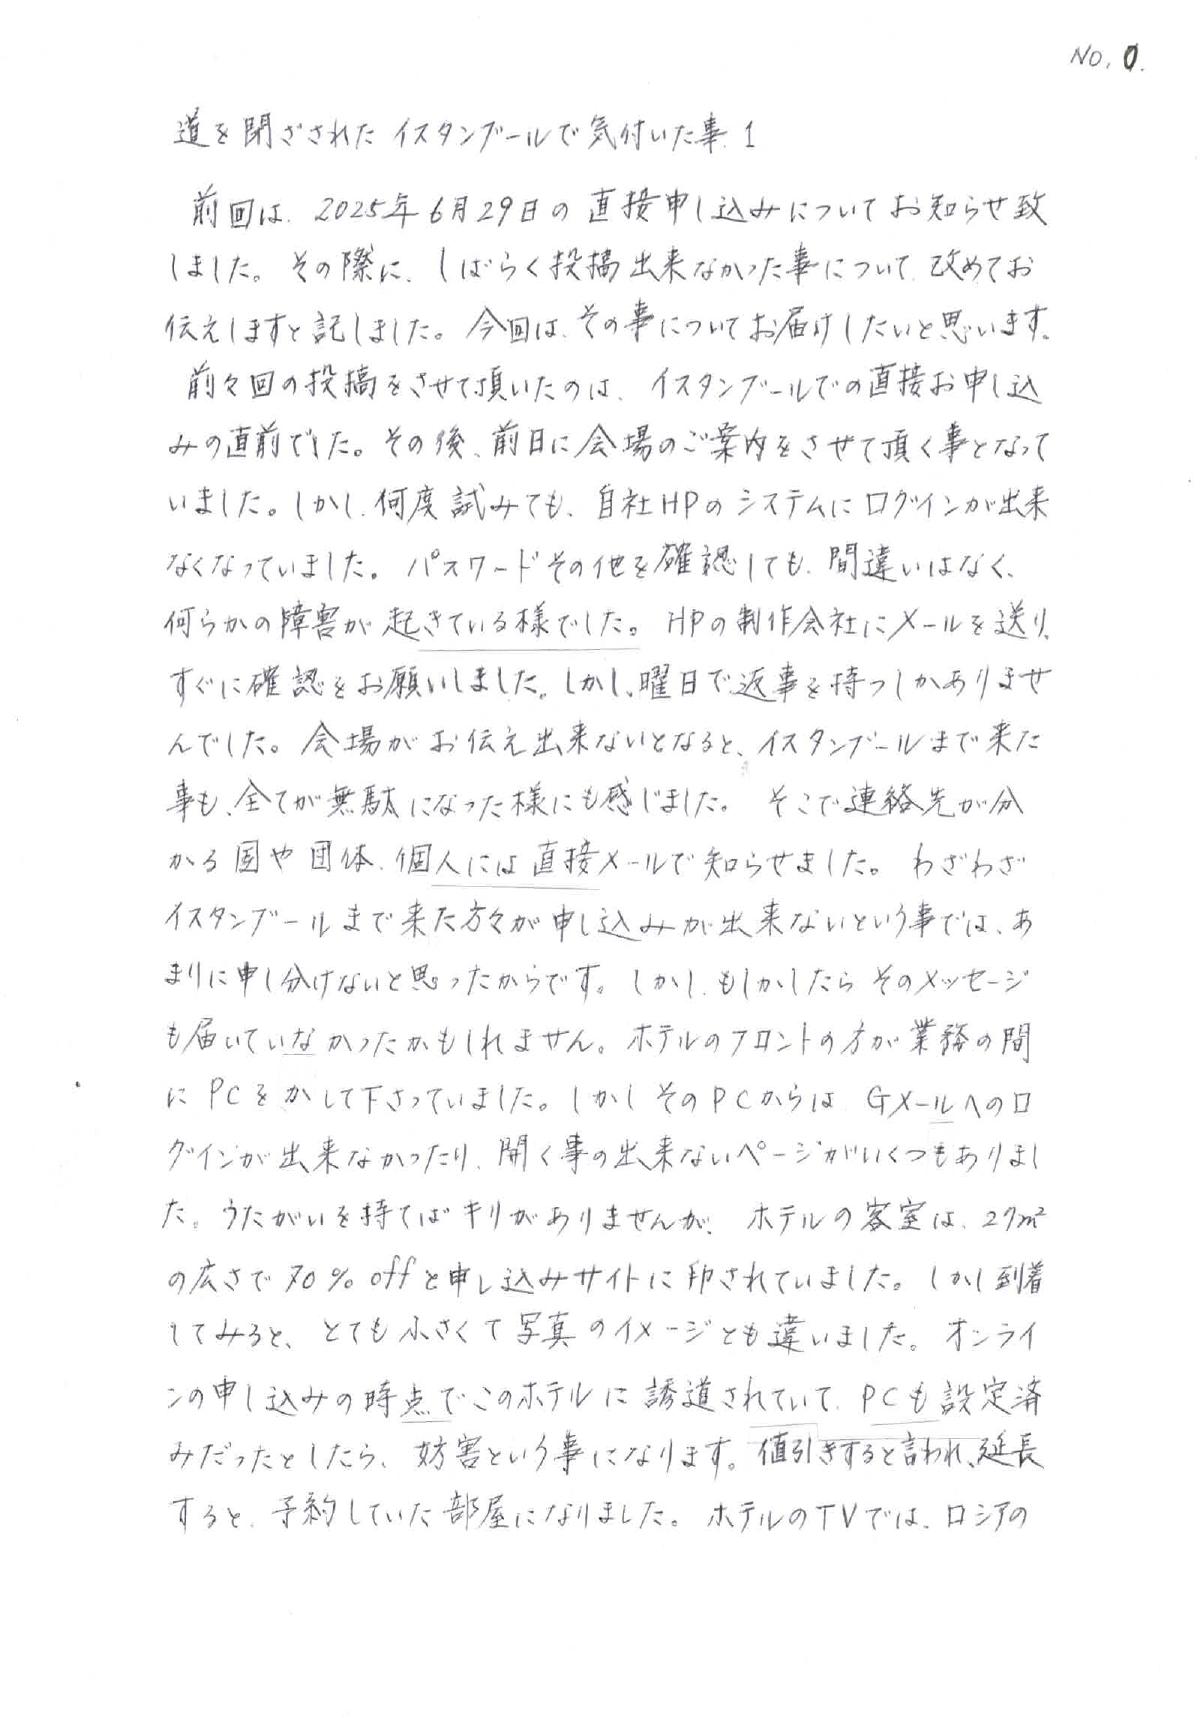 No. 0.
道を閉ざされたイスタンブールで気付いた事. 1
前回は、2025年6月29日の直接申し込みについてお知らせ致
しました。その際に、しばらく投稿出来なかった事について、改めてお
伝えしますと記しました。今回は、その事についてお届けしたいと思います。
前々回の投稿をさせて頂いたのは、イスタンブールでの直接お申し込
みの直前でした。その後、前日に会場のご案内をさせて頂く事となって
いました。しかし、何度試みても、自社HPのシステムにログインが出来
なくなっていました。パスワードその他を確認しても、間違いはなく、
何らかの障害が起きている様でした。HPの制作会社にメールを送り、
すぐに確認をお願いしました。しかし、曜日で返事を持つしかありませ
んでした。会場がお伝え出来ないとなると、イスタンブールまで来た
事も、全てが無駄になった様にも感じました。そこで連絡先が分
かる国や団体、個人には直接メールで知らせました。わざわざ
イスタンブールまで来た方々が申し込みが出来ないという事では、あ
まりに申し分けないと思ったからです。しかし、もしかしたらそのメッセージ
も届いていなかったかもしれません。ホテルのフロントの方が業務の間
にPCをかして下さっていました。しかしそのPCからは、Gメールへのロ
グインが出来なかったり、開く事の出来ないページがいくつもありまし
た。うたがいを持てばキリがありませんが、ホテルの客室は、27m²
の広さで70%offと申し込みサイトに印されていました。しかし到着
してみると、とても小さくて写真のイメージとも違いました。オンライ
ンの申し込みの時点でこのホテルに誘導されていて、PCも設定済
みだったとしたら、妨害という事になります。値引きすると言われ、延長
すると、予約していた部屋になりました。ホテルのTVでは、ロシアの